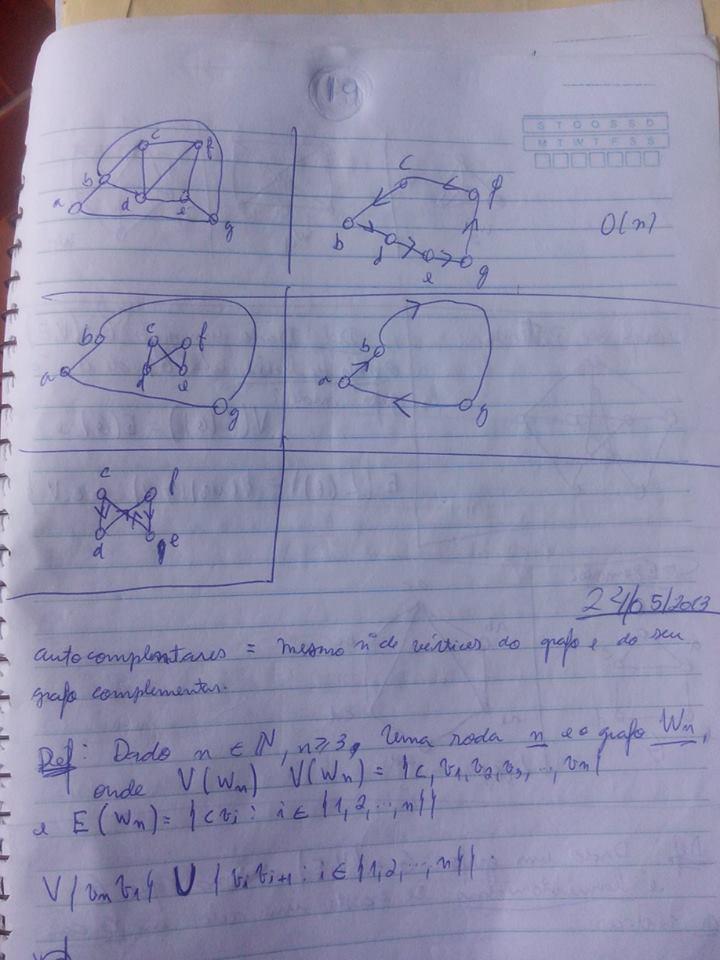 19
S T Q Q S S D
M T W T F S S
a b c d e f g
b c d e f g
O(n)
a b c d e f g
a b g
c f
d e
24/05/2013
autocomplentares = mesmo nº de vértices do grafo e do seu
grafo complementar.
Def: Dado n ∈ ℕ, n ≥ 3, Uma roda n e o grafo Wn,
onde V(Wn) V(Wn) = {c, v1, v2, v3, ..., vn}
e E(Wn) = {cvi : i ∈ {1, 2, ..., n}}
V {vn v1} U {vi vi+1 : i ∈ {1, 2, ..., n}}.